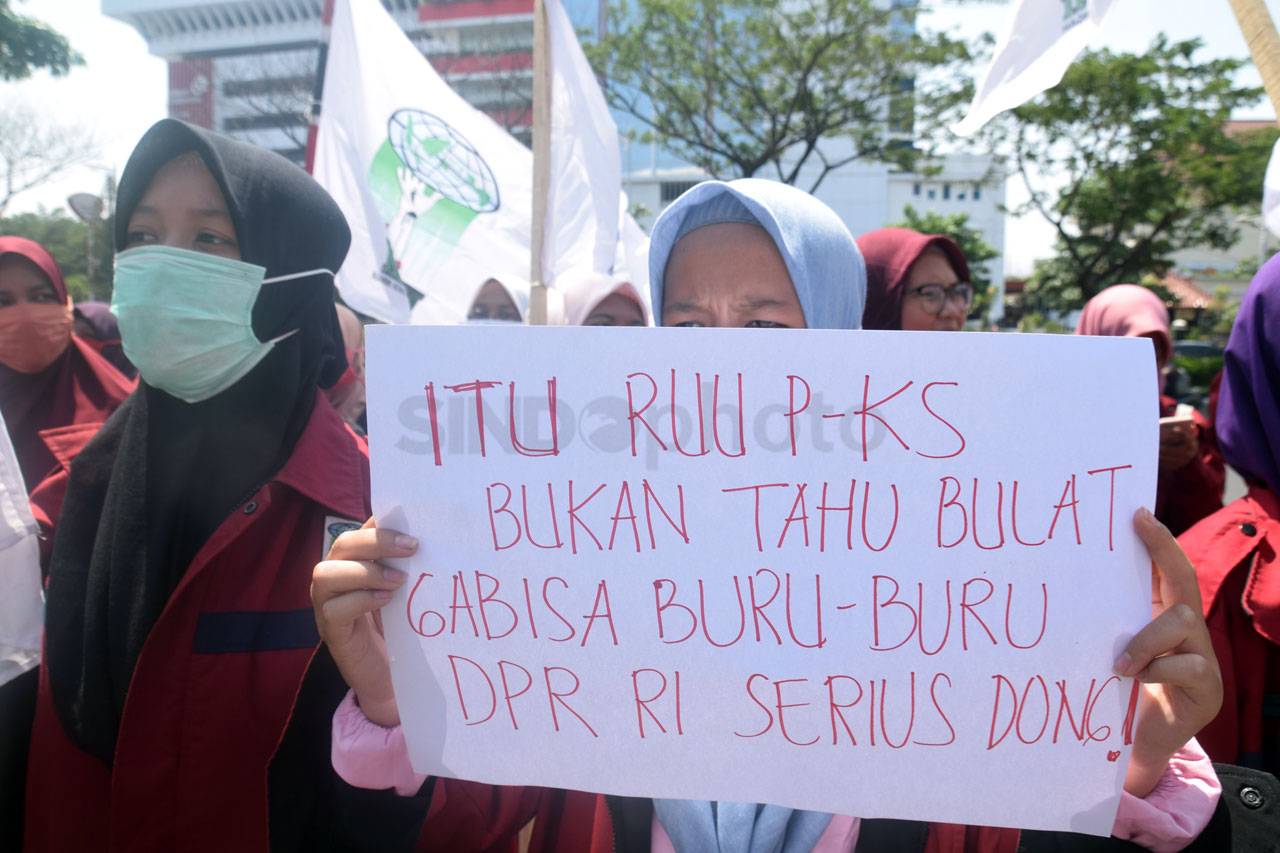 ITU RUU P-KS
BUKAN TAHU BULAT
GABISA BURU-BURU
DPR RI SERIUS DONG!
SINDOphoto